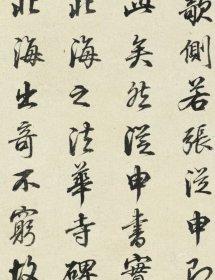 欹側若張從申
此矣然從申書實
北海之法華寺碑
北海出奇不窮故